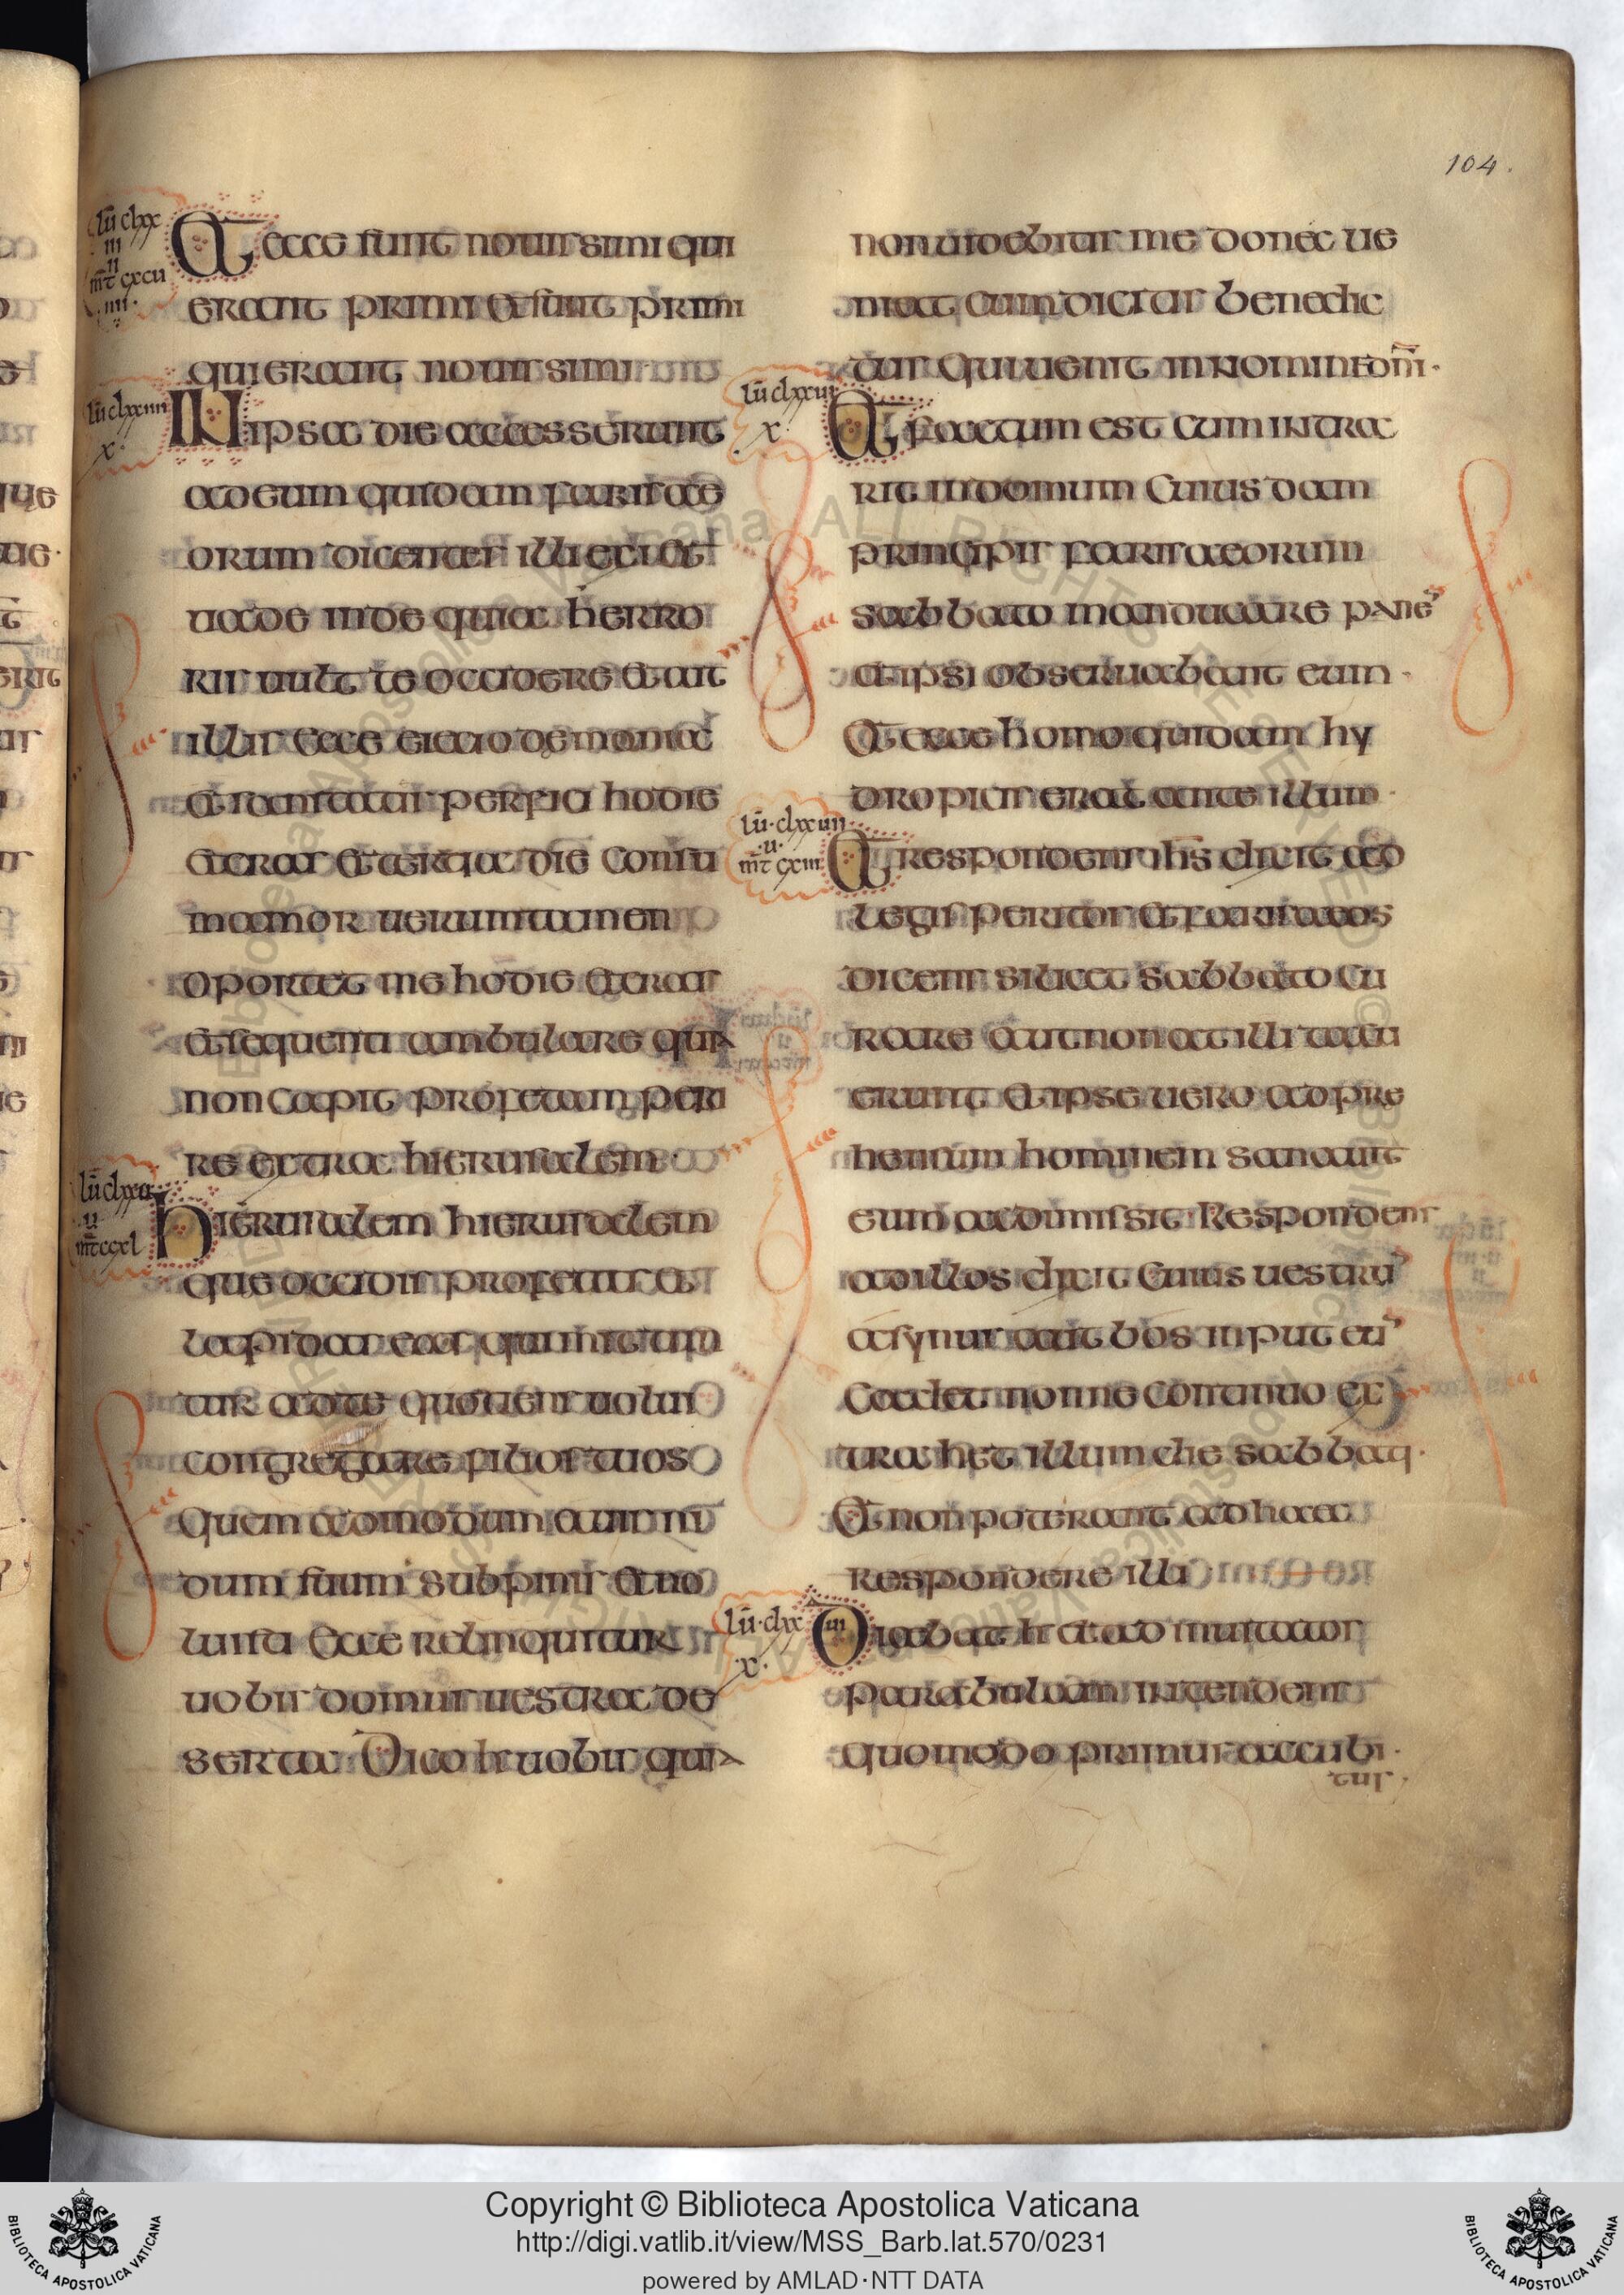 104.
lū clxx
iii
ii
mt cxcu
iiii
Et ecce sunt nouissimi qui
erant primi et sunt primi
qui erant nouissimi
lū clxxiiii
x
In ipsa die accesserunt
ad eum quidam farisae
orum dicentes illi exi et
uade inde quia herro
ris uult te occidere et ait
illis ecce eiecio demonia
et sanitatis perfici hodie
et cras et tertia die consu
mamor uerumtamen
oportet me hodie et cras
et sequenti ambulare quia
non capit profetam peri
re extra hierusalem
lū clxxu
u
mt ccxl
Hierusalem hierusalem
que occidis profetas et
lapidas eas qui mictun
tur ad te quotiens uolui
congregare filios tuos
quem admodum auis ni
dum suum sub pinis et no
luisti Ecce relinquitur
uobis domus uestra de
serta Dico h uobis quia
non uidebitis me donec ue
niat cum dicitis benedic
tus qui uenit in nomine dni.
lū clxxui
x
Et factum est cum intra
rit in domum cuius dam
principis farisaeorum
sabbato manducare pane
et ipsi obseruabant eum.
Et ecce homo quidam hy
dropicus erat ante illum.
lū clxxuii
u
mt cxui
Et respondens ihs dixit ad
legis peritos et farisaeos
dicens si licet sabbato cu
rare aut non at illi tacu
erunt et ipse uero adpre
hensum hominem sanauit
eum ac dimissit Respondens
ad illos dixit Cuius uestru
asynus aut bos in put eū
cadet nonne continuo ex
trahet illum die sabbati.
Et non poterant ad haec
respondere illi
lū clxx
uiii
x
Dicebat h et ad inuitatos
parabulam intendens
quomodo primus accubi.
tus.
Copyright © Biblioteca Apostolica Vaticana
http://digi.vatlib.it/view/MSS_Barb.lat.570/0231
powered by AMLAD·NTT DATA
BIBLIOTECA APOSTOLICA VATICANA
BIBLIOTECA APOSTOLICA VATICANA